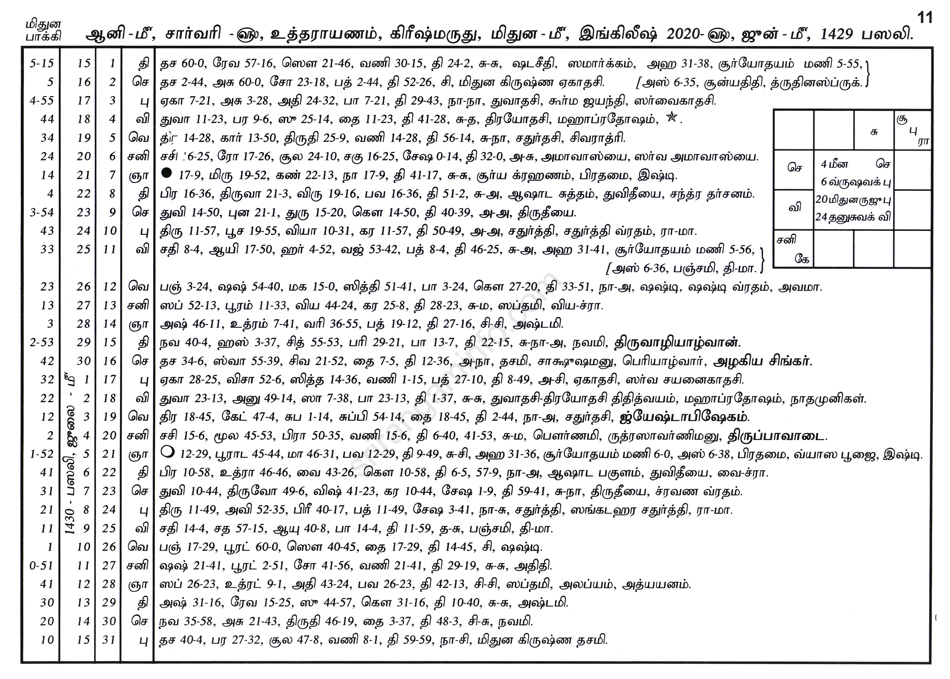 11
மிதுன பாக்கி
ஆனி-மீ, சார்வரி -ஹ, உத்தராயணம், கிரீஷ்மருது, மிதுன-மீ, இங்கிலீஷ் 2020-ஹ, ஜுன்-மீ, 1429 பஸலி.
5-15 15 1 தி தச 60-0, ரேவ 57-16, ஸௌ 21-46, வணி 30-15, தி 24-2, சு-சு, ஷடசீதி, ஸமார்க்கம், அஹ 31-38, சூர்யோதயம் மணி 5-55,
5 16 2 செ தச 2-44, அசு 60-0, சோ 23-18, பத் 2-44, தி 52-26, சி, மிதுன கிருஷ்ண ஏகாதசி. [அஸ் 6-35, சூன்யதிதி, த்ருதினஸ்ப்ருக்.
4-55 17 3 பு ஏகா 7-21, அசு 3-28, அதி 24-32, பா 7-21, தி 29-43, நா-நா, துவாதசி, கூர்ம ஜயந்தி, ஸர்வைகாதசி.
44 18 4 வி துவா 11-23, பர 9-6, ஸு 25-14, தை 11-23, தி 41-28, சு-த, திரயோதசி, மஹாப்ரதோஷம், ★.
34 19 5 வெ திர 14-28, கார் 13-50, திருதி 25-9, வணி 14-28, தி 56-14, சு-நா, சதுர்தசி, சிவராத்ரி.
24 20 6 சனி சசி 16-25, ரோ 17-26, சூல 24-10, சகு 16-25, சேஷ 0-14, தி 32-0, அ-சு, அமாவாஸ்யை, ஸர்வ அமாவாஸ்யை.
14 21 7 ஞா ● 17-9, மிரு 19-52, கண் 22-13, நா 17-9, தி 41-17, சு-சு, சூர்ய க்ரஹணம், பிரதமை, இஷ்டி.
4 22 8 தி பிர 16-36, திருவா 21-3, விரு 19-16, பவ 16-36, தி 51-2, சு-அ, ஆஷாட சுத்தம், துவிதீயை, சந்த்ர தர்சனம்.
3-54 23 9 செ துவி 14-50, புன 21-1, துரு 15-20, கௌ 14-50, தி 40-39, அ-அ, திருதீயை.
43 24 10 பு திரு 11-57, பூச 19-55, வியா 10-31, கர 11-57, தி 50-49, அ-அ, சதுர்த்தி, சதுர்த்தி வ்ரதம், ரா-மா.
33 25 11 வி சதி 8-4, ஆயி 17-50, ஹர் 4-52, வஜ் 53-42, பத் 8-4, தி 46-25, சு-அ, அஹ 31-41, சூர்யோதயம் மணி 5-56,
[அஸ் 6-36, பஞ்சமி, தி-மா.
23 26 12 வெ பஞ் 3-24, ஷஷ் 54-40, மக 15-0, ஸித்தி 51-41, பா 3-24, கௌ 27-20, தி 33-51, நா-அ, ஷஷ்டி, ஷஷ்டி வ்ரதம், அவமா.
13 27 13 சனி ஸப் 52-13, பூரம் 11-33, விய 44-24, கர 25-8, தி 28-23, சு-ம, ஸப்தமி, விய-ச்ரா.
3 28 14 ஞா அஷ் 46-11, உத்ரம் 7-41, வரி 36-55, பத் 19-12, தி 27-16, சி-சி, அஷ்டமி.
2-53 29 15 தி நவ 40-4, ஹஸ் 3-37, சித் 55-53, பரி 29-21, பா 13-7, தி 22-15, சு-நா-அ, நவமி, திருவாழியாழ்வான்.
42 30 16 செ தச 34-6, ஸ்வா 55-39, சிவ 21-52, தை 7-5, தி 12-36, அ-நா, தசமி, சாக்ஷுஷமனு, பெரியாழ்வார், அழகிய சிங்கர்.
32 1 17 பு ஏகா 28-25, விசா 52-6, ஸித்த 14-36, வணி 1-15, பத் 27-10, தி 8-49, அ-சி, ஏகாதசி, ஸர்வ சயனைகாதசி.
22 2 18 வி துவா 23-13, அனு 49-14, ஸா 7-38, பா 23-13, தி 1-37, சு-சு, துவாதசி-திரயோதசி திதித்வயம், மஹாப்ரதோஷம், நாதமுனிகள்.
12 3 19 வெ திர 18-45, கேட் 47-4, சுப 1-14, சுப்பி 54-14, தை 18-45, தி 2-44, நா-அ, சதுர்தசி, ஜ்யேஷ்டாபிஷேகம்.
2 4 20 சனி சசி 15-6, மூல 45-53, பிரா 50-35, வணி 15-6, தி 6-40, 41-53, சு-ம, பௌர்ணமி, ருத்ரஸாவர்ணிமனு, திருப்பாவாடை.
1-52 5 21 ஞா ○ 12-29, பூராட 45-44, மா 46-31, பவ 12-29, தி 9-49, சு-சி, அஹ 31-36, சூர்யோதயம் மணி 6-0, அஸ் 6-38, பிரதமை, வ்யாஸ பூஜை, இஷ்டி.
41 6 22 தி பிர 10-58, உத்ரா 46-46, வை 43-26, கௌ 10-58, தி 6-5, 57-9, நா-அ, ஆஷாட பகுளம், துவிதீயை, வை-ச்ரா.
31 7 23 செ துவி 10-44, திருவோ 49-6, விஷ் 41-23, கர 10-44, சேஷ 1-9, தி 59-41, சு-நா, திருதீயை, ச்ரவண வ்ரதம்.
21 8 24 பு திரு 11-49, அவி 52-35, பிரீ 40-17, பத் 11-49, சேஷ 3-41, நா-சு, சதுர்த்தி, ஸங்கடஹர சதுர்த்தி, ரா-மா.
11 9 25 வி சதி 14-4, சத 57-15, ஆயு 40-8, பா 14-4, தி 11-59, த-சு, பஞ்சமி, தி-மா.
1 10 26 வெ பஞ் 17-29, பூரட் 60-0, ஸௌ 40-45, தை 17-29, தி 14-45, சி, ஷஷ்டி.
0-51 11 27 சனி ஷஷ் 21-41, பூரட் 2-51, சோ 41-56, வணி 21-41, தி 29-19, சு-சு, அதிதி.
41 12 28 ஞா ஸப் 26-23, உத்ரட் 9-1, அதி 43-24, பவ 26-23, தி 42-13, சி-சி, ஸப்தமி, அலப்யம், அத்யயனம்.
30 13 29 தி அஷ் 31-16, ரேவ 15-25, ஸு 44-57, கௌ 31-16, தி 10-40, சு-சு, அஷ்டமி.
20 14 30 செ நவ 35-58, அசு 21-43, திருதி 46-19, தை 3-37, தி 48-3, சி-சு, நவமி.
10 15 31 பு தச 40-4, பர 27-32, சூல 47-8, வணி 8-1, தி 59-59, நா-சி, மிதுன கிருஷ்ண தசமி.
1430 - பஸலி, ஜுலை - மீ
சு
சூ பு ரா
செ
வி
சனி கே
4 மீன செ
6 வ்ருஷவக் பு
20 மிதுனருஜு பு
24 தனுசுவக் வி